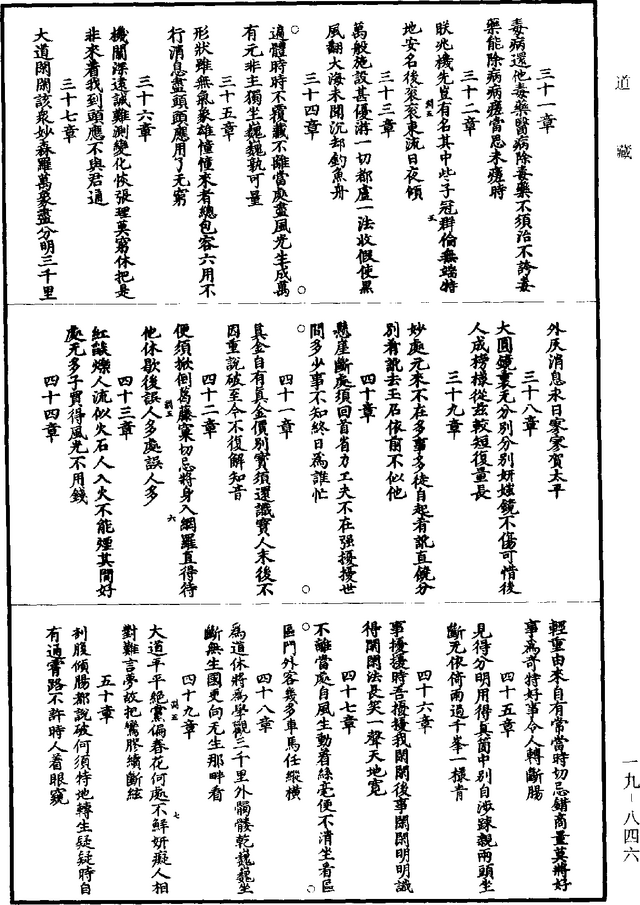 道藏
三十一章
毒病還他毒藥醫病除毒藥不須治不誇毒
藥能除病病瘥當思未瘥時
三十二章
朕兆機先豈有名其中些子冠群倫無端特
地安名後衮衮東流日夜傾
三十三章
萬般施設甚優游一切都盧一法收假使黑
風翻大海未聞沉却釣魚舟
三十四章
適體時時不覆藏不離當處盡風光生成萬
有元非主獨坐巍巍孰可量
三十五章
形狀雖無氣象雄憧憧來者總包容六用不
行消息盡頭頭應用了无窮
三十六章
機關深遠識難測變化恢張理莫窮休把是
非來着我到頭應不與君通
三十七章
大道閑閑該衆妙森羅萬象盡分明三千里
外灰消息永日寥寥賀太平
三十八章
大圓鏡裏元分別分別妍媸鏡不傷可惜後
人成榜樣從兹較短復量長
三十九章
妙處元來不在多事多徒自起肴訛直饒分
別肴訛去玉石依前不似他
四十章
懸崖斷處須回首省力工夫不在强擾擾世
間多少事不知終日為誰忙
四十一章
真金自有真金價別寶須還識寶人末後不
因重說破至今不復解知音
四十二章
便須掀倒葛藤窠切忌將身入網羅直得待
他休歇後誤人多處誤人多
四十三章
紅燄爍人流似火石人入火不能煙其間好
處无多子買得風光不用錢
四十四章
輕重由來自有常當時切忌錯商量莫將好
事為奇特好事令人轉斷腸
四十五章
見得分明用得真箇中別自涉踈親兩頭坐
斷无依倚雨過千峯一樣青
四十六章
事擾擾時吾擾擾我閑閑後事閑閑明明識
得閑閑法長笑一聲天地寬
四十七章
不離當處自風生動着絲毫便不消坐看區
區門外客幾多車馬任縱橫
四十八章
為道休將為學觀三千里外髑髏乾巍巍坐
斷無生國更向元生那畔看
四十九章
大道平平絕黨偏春花何處不鮮妍癡人相
對難言夢故把鸞膠續斷絃
五十章
刳腹傾腸都說破何須特地轉生疑疑時自
有通霄路不許時人着眼窺
一九-八四六